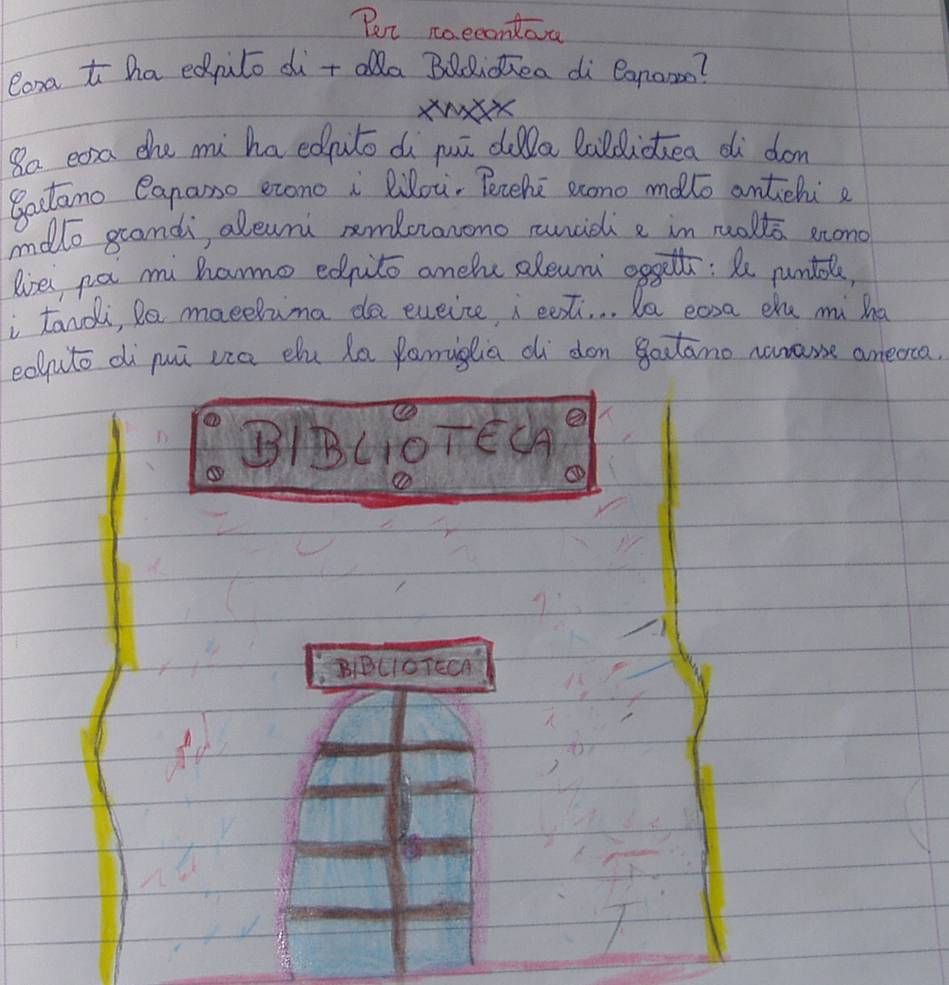 Per raccontare
Cosa ti ha colpito di + alla Biblioteca di Capasso?
La cosa che mi ha colpito di più della biblioteca di don
Gaetano Capasso erono i libri. Perché erono molto antichi e
molto grandi, alcuni sembravono ruvidi e in realtà erono
lisci, poi mi hanno colpito anche alcuni oggetti: le puntole,
i tavoli, la macchina da cucire, i cesti... la cosa che mi ha
colpito di più era che la famiglia di don Gaetano ancora.
BIBLIOTECA
BIBLIOTECA